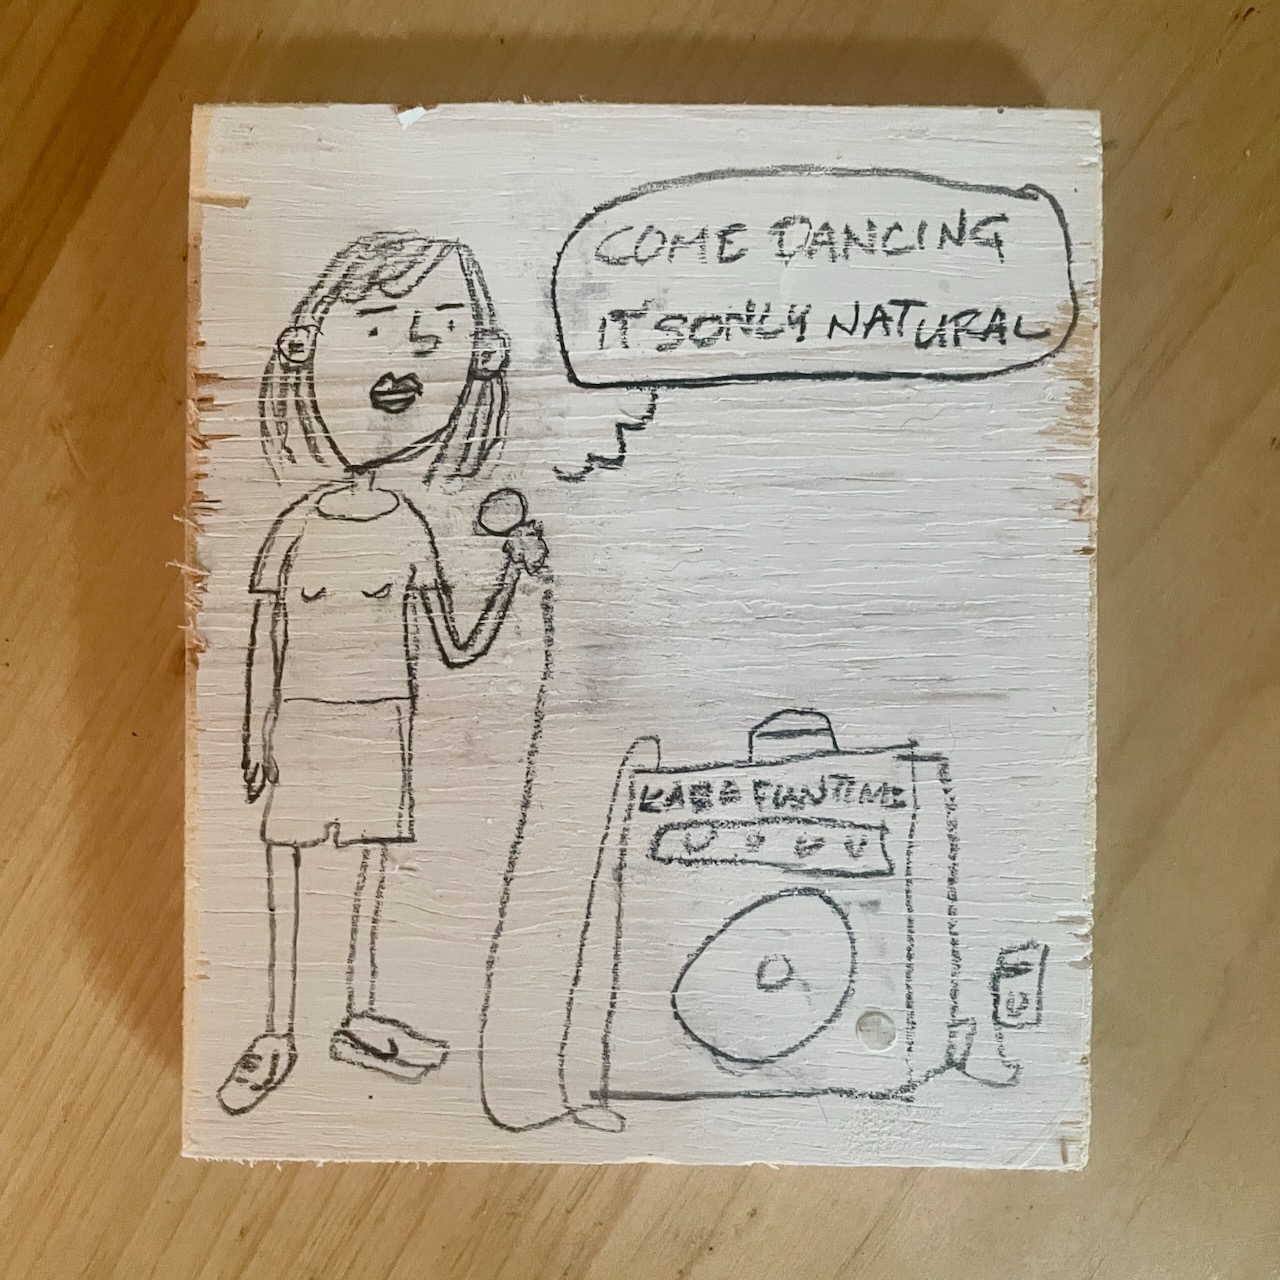 COME DANCING
IT'S ONLY NATURAL
FUNTIME